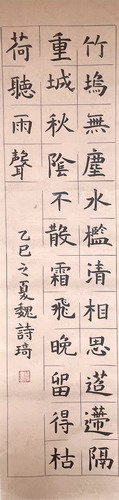 竹塢無塵水檻清相思迢遰隔
重城秋陰不散霜飛晚留得枯
荷聽雨聲
乙巳之夏魏詩琦